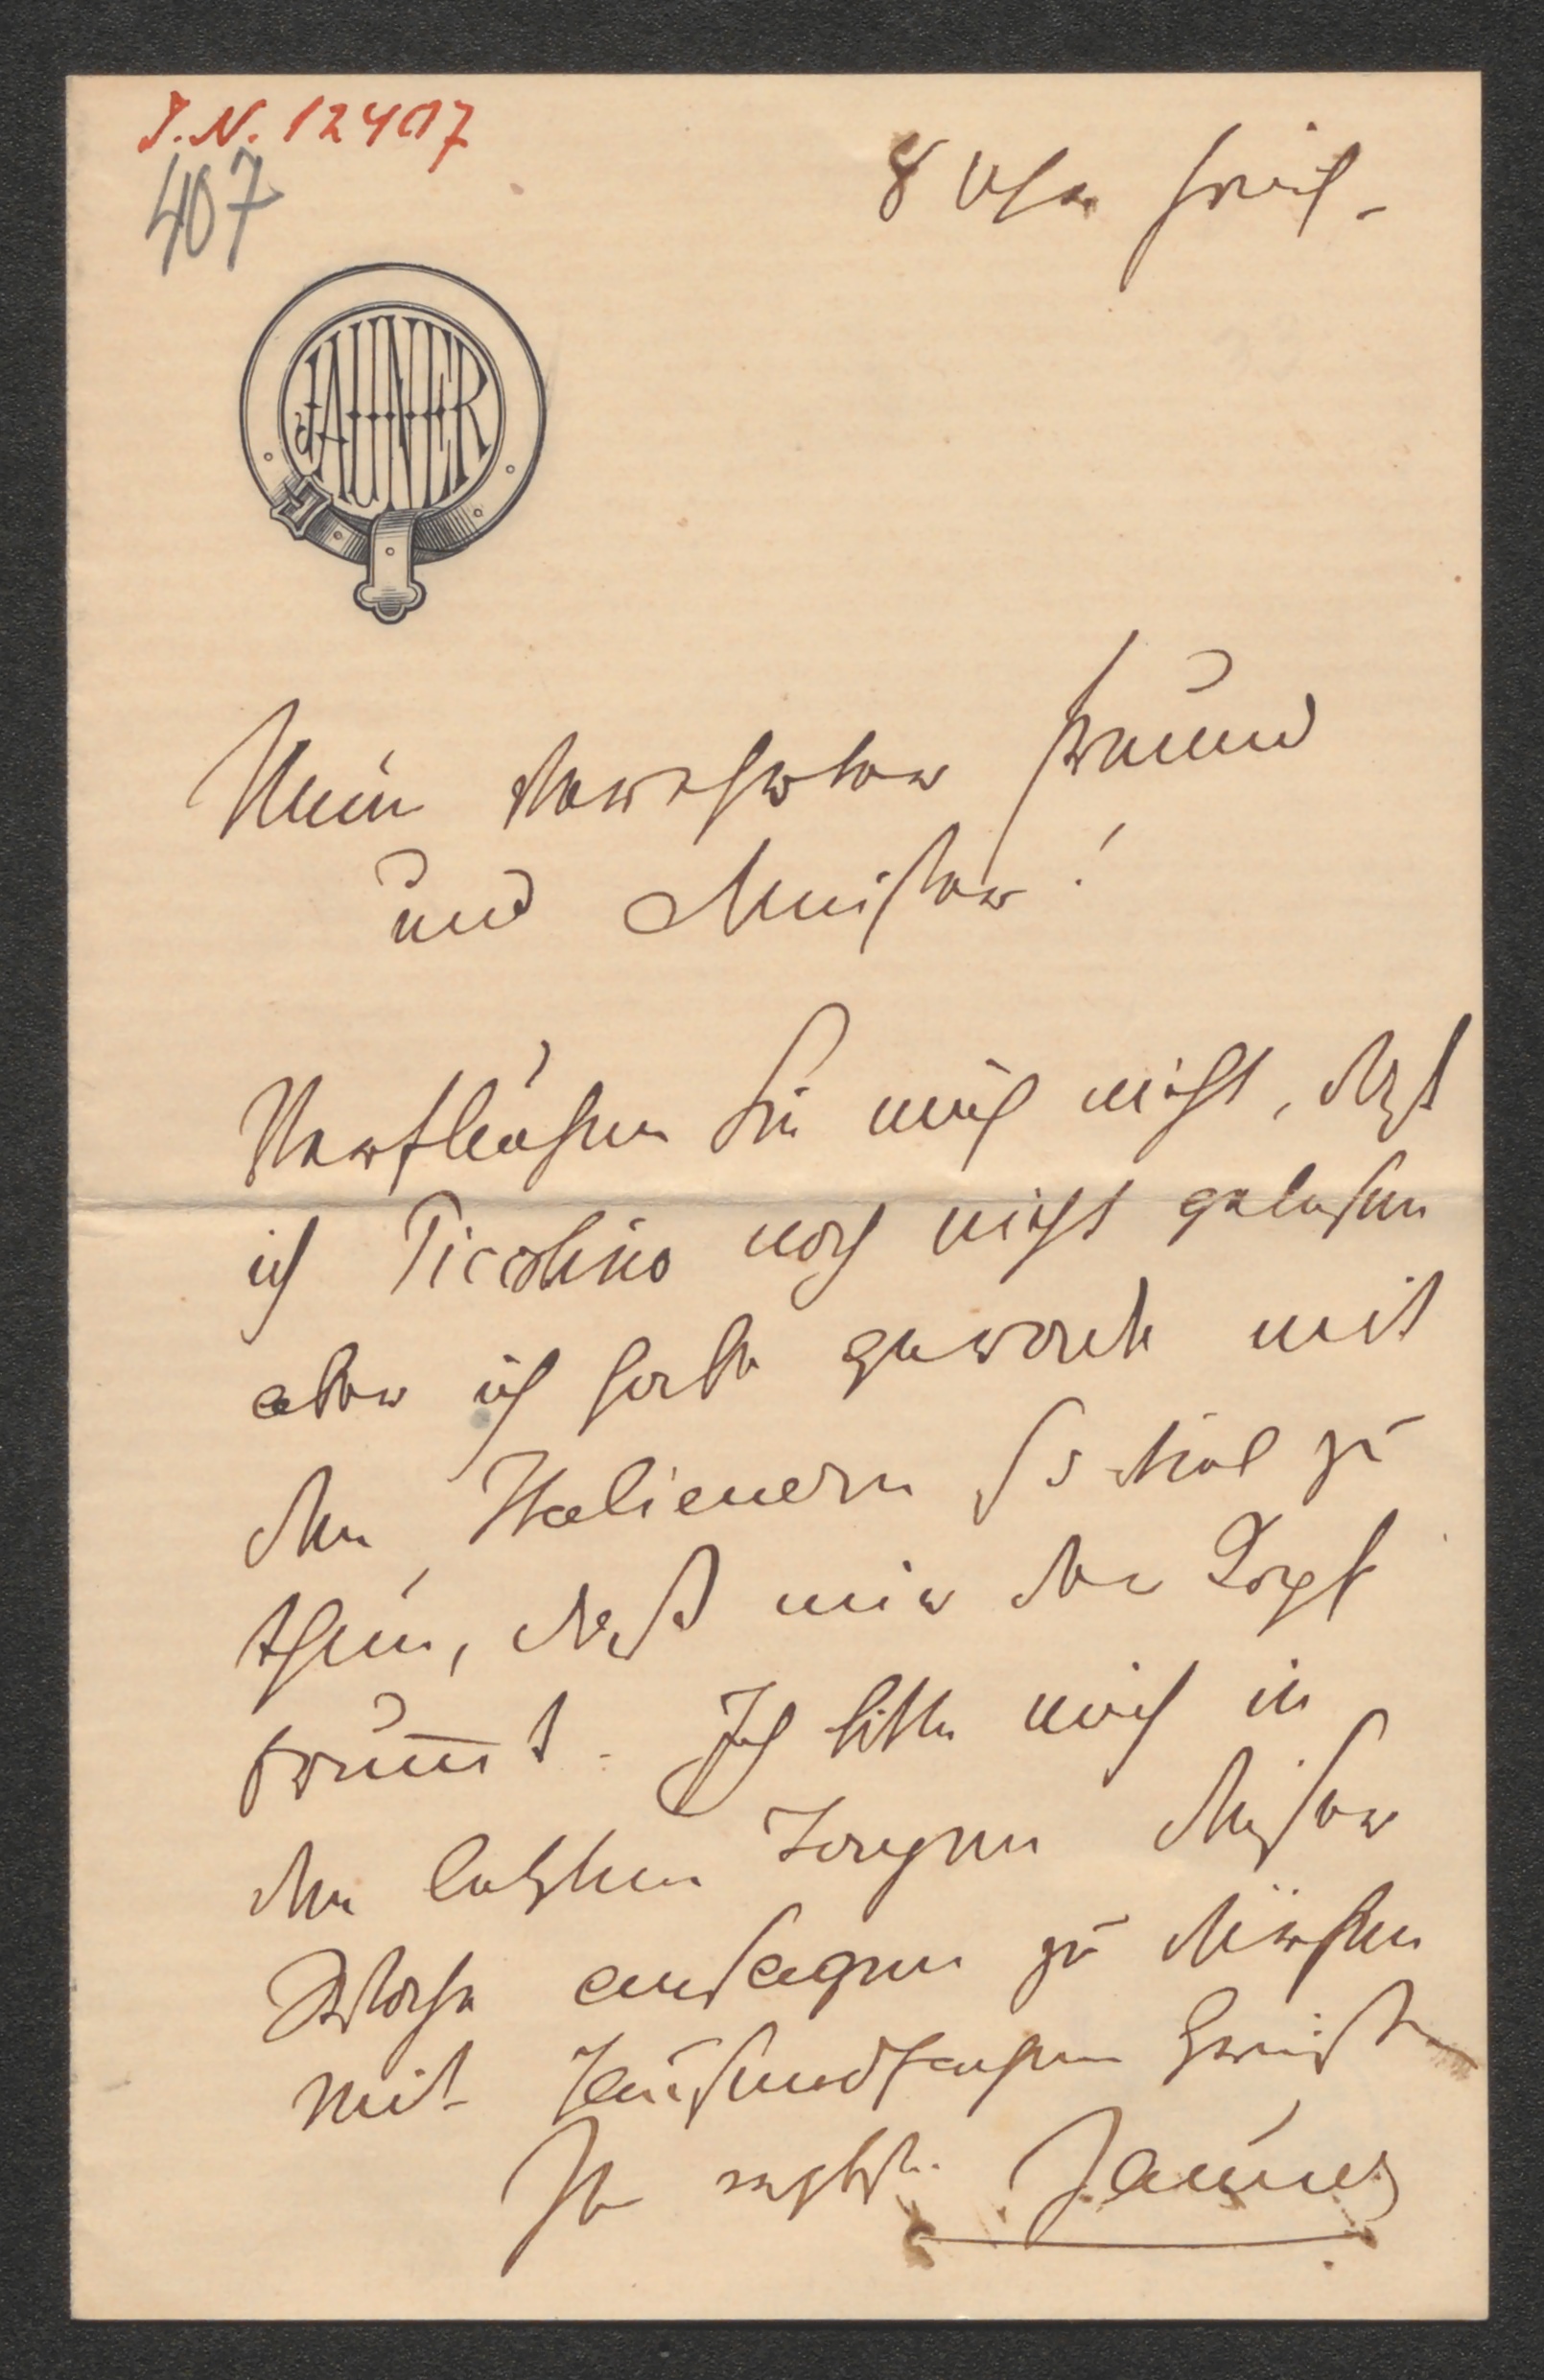 I.N. 12407
407
8 Uhr früh.
JAUNER
Mein verehrter Freund
und Meister!
Verfluchen Sie mich nicht, daß
ich Piccolino noch nicht gelesen
aber ich habe gerade mit
den Italienern so viel zu
thun, daß mir der Kopf
brum̅t. Ich bitte mich in
den letzten Tagen dieser
Woche ansagen zu dürfen
mit tausendfachem Gruß
Ihr ergbst. Jauner